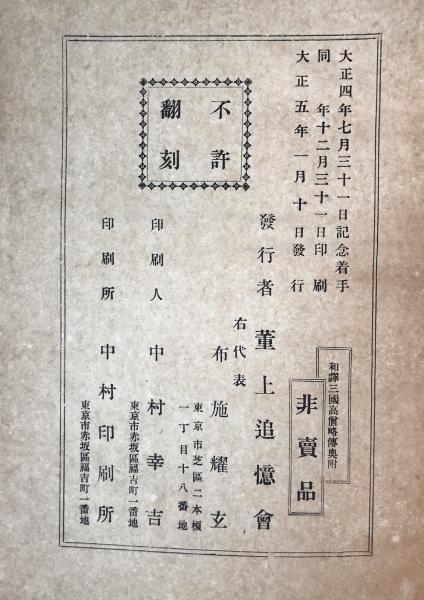 大正四年七月三十一日記念着手
同年十二月三十一日印刷
大正五年一月十日發行
和譯三國高僧略傳奧附
非賣品
不許
翻刻
發行者 董上追憶會
右代表
布施耀玄
東京市芝區二本榎
一丁目十八番地
印刷人 中村幸吉
東京市赤坂區福吉町一番地
印刷所 中村印刷所
東京市赤坂區福吉町一番地